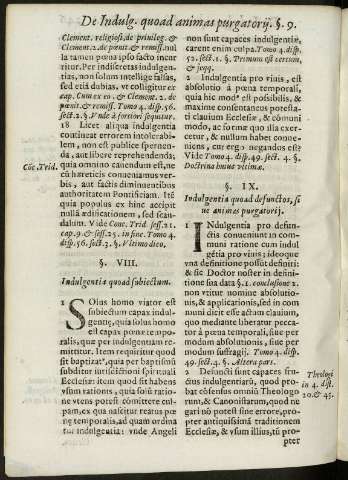 De Indulg. quoad animas purgatorij. §. 9.
Clement. religiosi. de priuileg. &
Clement. 2. de pœnit. & remiss. nul
la tamen pœna ipso facto incur
ritur. Per indiscretas indulgen-
tias, non solum intellige falsas,
sed etiā dubias, vt colligitur ex
cap. Cum ex eo. & Clement. 2. de
pœnit. & remiss. Tomo 4. disp. 56.
sect. 2. §. Vnde à fortiori sequitur.
18 Licet aliqua indulgentia
contineat errorem intolerabi-
lem, non est publice spernen-
da, aut libere reprehendenda;
quia omnino cauendum est, ne
cū hæreticis conueniamus ver-
bis, aut factis diminuentibus
authoritatem Pontificiam. Itē
quia populus ex hinc accipit
nullā ædificationem, sed scan-
dalum. Vide Conc. Trid. sess. 21.
cap. 9. & sess. 25. in fine. Tomo 4.
disp. 56. sect. 3. §. Vltimo dico.
Cōc. Trid.
§. VIII.
Indulgentia quoad subiectum.
1 SOlus homo viator est
subiectum capax indul-
gentiæ, quia solus homo
est capax pœnæ tempo-
ralis, quæ per indulgentiam re-
mittitur. Item requiritur quod
sit baptizatꝰ, quia per baptismū
subditur iurisdictioni spirituali
Ecclesiæ: item quod sit habens
vsum rationis, quia solū ratio-
ne vtens potest cōmittere cul-
pam, ex qua nascitur reatus pœ
nę temporalis, ad quam ordina
tur indulgentia: vnde Angeli
non sunt capaces indulgentiæ,
carent enim culpa. Tomo 4. disp.
52. sect. 1. §. Primum est certum,
& seqq.
2 Indulgentia pro viuis, est
absolutio à pœna temporali,
quia hic modꝰ est possibilis, &
maxime consentaneus potesta-
ti clauium Ecclesiæ, & commu-
ni modo, ac formæ quo illa exer-
cetur, & nullum habet conue-
niens, cur ergo negandus est?
Vide Tomo 4. disp. 49. sect. 4. §.
Doctrina huius vltimæ.
§. IX.
Indulgentia quoad defunctos, si
ue animas purgatorij.
1 INdulgentia pro defun-
ctis conueniunt in com-
muni ratione cum indul
gētia pro viuis; ideoque
vna definitione possūt definiri:
& sic Doctor noster in defini-
tione sua data §. 1. conclusione 2.
non vtitur nomine absolutio-
nis, & applicationis, sed in com
muni dicit esse actum clauium,
quo mediante liberatur pecca-
tor à pœna temporali, siue per
modum absolutionis, siue per
modum suffragij. Tomo 4. disp.
49. sect. 4. §. Altera pars.
2 Defuncti sunt capaces fru-
ctus indulgentiarū, quod pro-
bat cōsensus omniū Theologo
rum, & Canonistarum, quod ne
gari nō potest sine errore, pro-
pter antiquissimā traditionem
Ecclesiæ, & vsum illius, tū pro-
pter
Theologi
in 4. dist.
20. & 45.